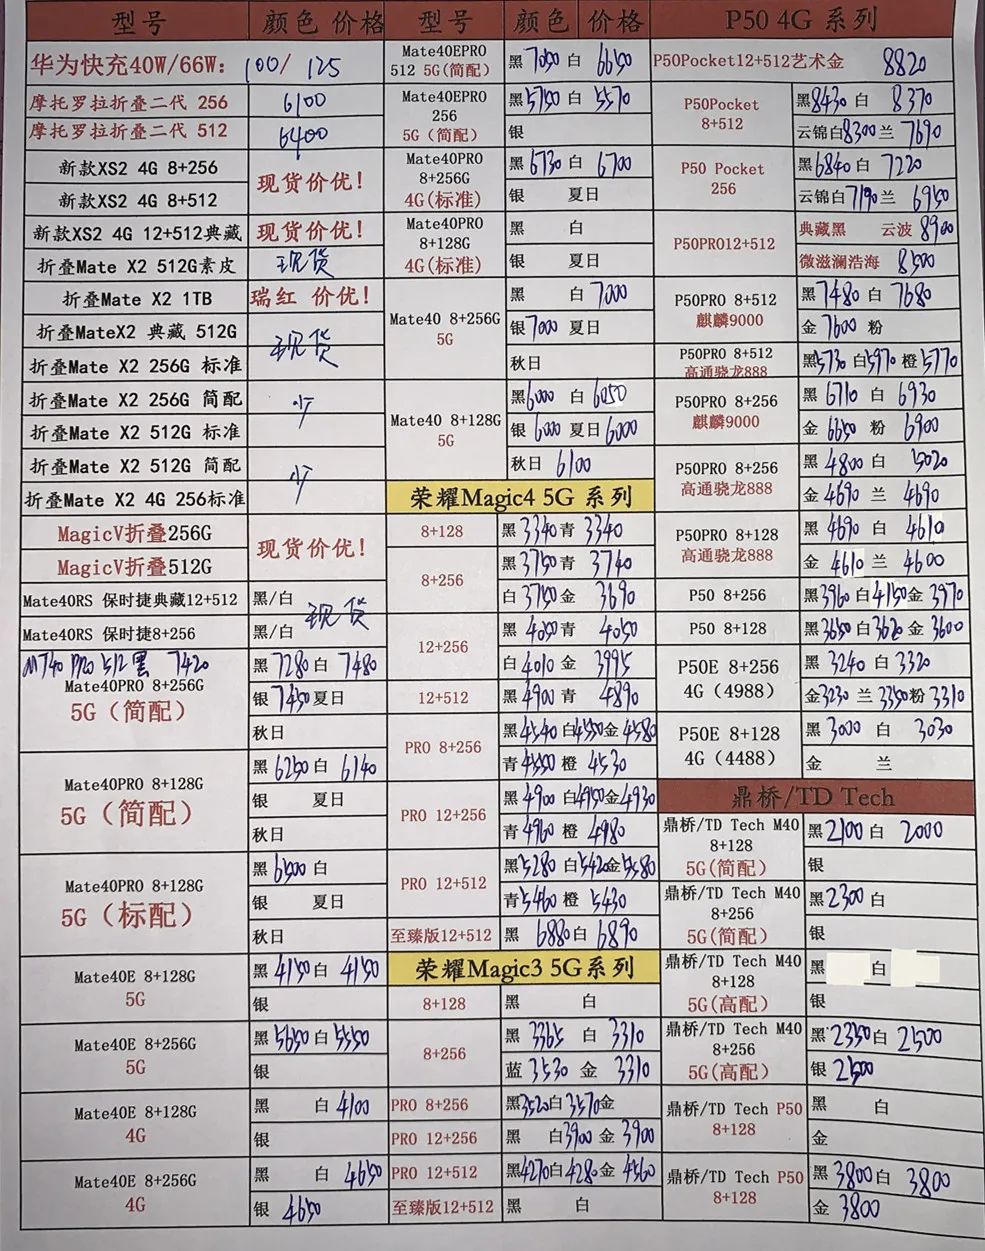 型号 颜色 价格
华为快充40W/66W: 100/ 125
摩托罗拉折叠二代 256 6100
摩托罗拉折叠二代 512 6400
新款XS2 4G 8+256
现货价优!
新款XS2 4G 8+512
新款XS2 4G 12+512典藏 现货价优!
折叠Mate X2 512G素皮 现货
折叠Mate X2 1TB 瑞红 价优!
折叠MateX2 典藏 512G
现货
折叠Mate X2 256G 标准
折叠Mate X2 256G 简配
少
折叠Mate X2 512G 标准
折叠Mate X2 512G 简配
少
折叠Mate X2 4G 256标准
MagicV折叠256G
现货价优!
MagicV折叠512G
Mate40RS 保时捷典藏12+512 黑/白
现货
Mate40RS 保时捷8+256 黑/白
MT40 PRO 512 黑 7420
Mate40PRO 8+256G
5G（简配）
黑 7280 白 7480
银 7450 夏日
秋日
Mate40PRO 8+128G
5G（简配）
黑 6250 白 6140
银 夏日
秋日
Mate40PRO 8+128G
5G（标配）
黑 6500 白
银 夏日
秋日
Mate40E 8+128G
5G
黑 4150 白 4150
银
Mate40E 8+256G
5G
黑 5650 白 5550
银
Mate40E 8+128G
4G
黑 白 4100
银
Mate40E 8+256G
4G
黑 白 4650
银 4650
型号 颜色 价格
Mate40EPRO
512 5G(简配)
黑 7050 白 6650
Mate40EPRO
256
5G（简配）
黑 5750 白 5570
银
Mate40PRO
8+256G
4G(标准)
黑 6730 白 6700
银 夏日
Mate40PRO
8+128G
4G(标准)
黑 白
银 夏日
Mate40 8+256G
5G
黑 白 7000
银 7000 夏日
秋日
Mate40 8+128G
5G
黑 6000 白 6050
银 6000 夏日 6000
秋日 6100
荣耀Magic4 5G 系列
8+128 黑 3340 青 3340
8+256
黑 3750 青 3740
白 3750 金 3690
12+256
黑 4050 青 4050
白 4010 金 3995
12+512 黑 4900 青 4890
PRO 8+256
黑 4540 白 4550 金 4580
青 4550 橙 4530
PRO 12+256
黑 4900 白 4950 金 4930
青 4960 橙 4980
PRO 12+512
黑 5280 白 5420 金 5580
青 5460 橙 5430
至臻版12+512 黑 6880 白 6890
荣耀Magic3 5G系列
8+128 黑 白
8+256
黑 3365 白 3310
蓝 3530 金 3310
PRO 8+256 黑 3520 白 3570 金
PRO 12+256 黑 白 3900 金 3900
PRO 12+512 黑 4270 白 4280 金 4560
至臻版12+512 黑 白
P50 4G 系列
P50Pocket12+512艺术金 8820
P50Pocket
8+512
黑 8430 白 8370
云锦白 8300 兰 7690
P50 Pocket
256
黑 6840 白 7220
云锦白 7190 兰 6950
P50PRO12+512
典藏黑 云波 8900
微滋澜浩海 8500
P50PRO 8+512
麒麟9000
黑 7480 白 7680
金 7600 粉
P50PRO 8+512
高通骁龙888
黑 5730 白 5970 橙 5770
P50PRO 8+256
麒麟9000
黑 6710 白 6930
金 6650 粉 6900
P50PRO 8+256
高通骁龙888
黑 4800 白 5020
金 4690 兰 4690
P50PRO 8+128
高通骁龙888
黑 4690 白 4610
金 4610 兰 4600
P50 8+256 黑 3960 白 4150 金 3970
P50 8+128 黑 3650 白 3620 金 3600
P50E 8+256
4G（4988）
黑 3240 白 3320
金 3230 兰 3350 粉 3310
P50E 8+128
4G（4488）
黑 3000 白 3030
金 兰
鼎桥/TD Tech
鼎桥/TD Tech M40
8+128
5G(简配)
黑 2100 白 2000
银
鼎桥/TD Tech M40
8+256
5G(简配)
黑 2300 白
银
鼎桥/TD Tech M40
8+128
5G(高配)
黑 白
银
鼎桥/TD Tech M40
8+256
5G(高配)
黑 2350 白 2500
银 2500
鼎桥/TD Tech P50
8+128
黑 白
金
鼎桥/TD Tech P50
8+128
黑 3800 白 3800
金 3800